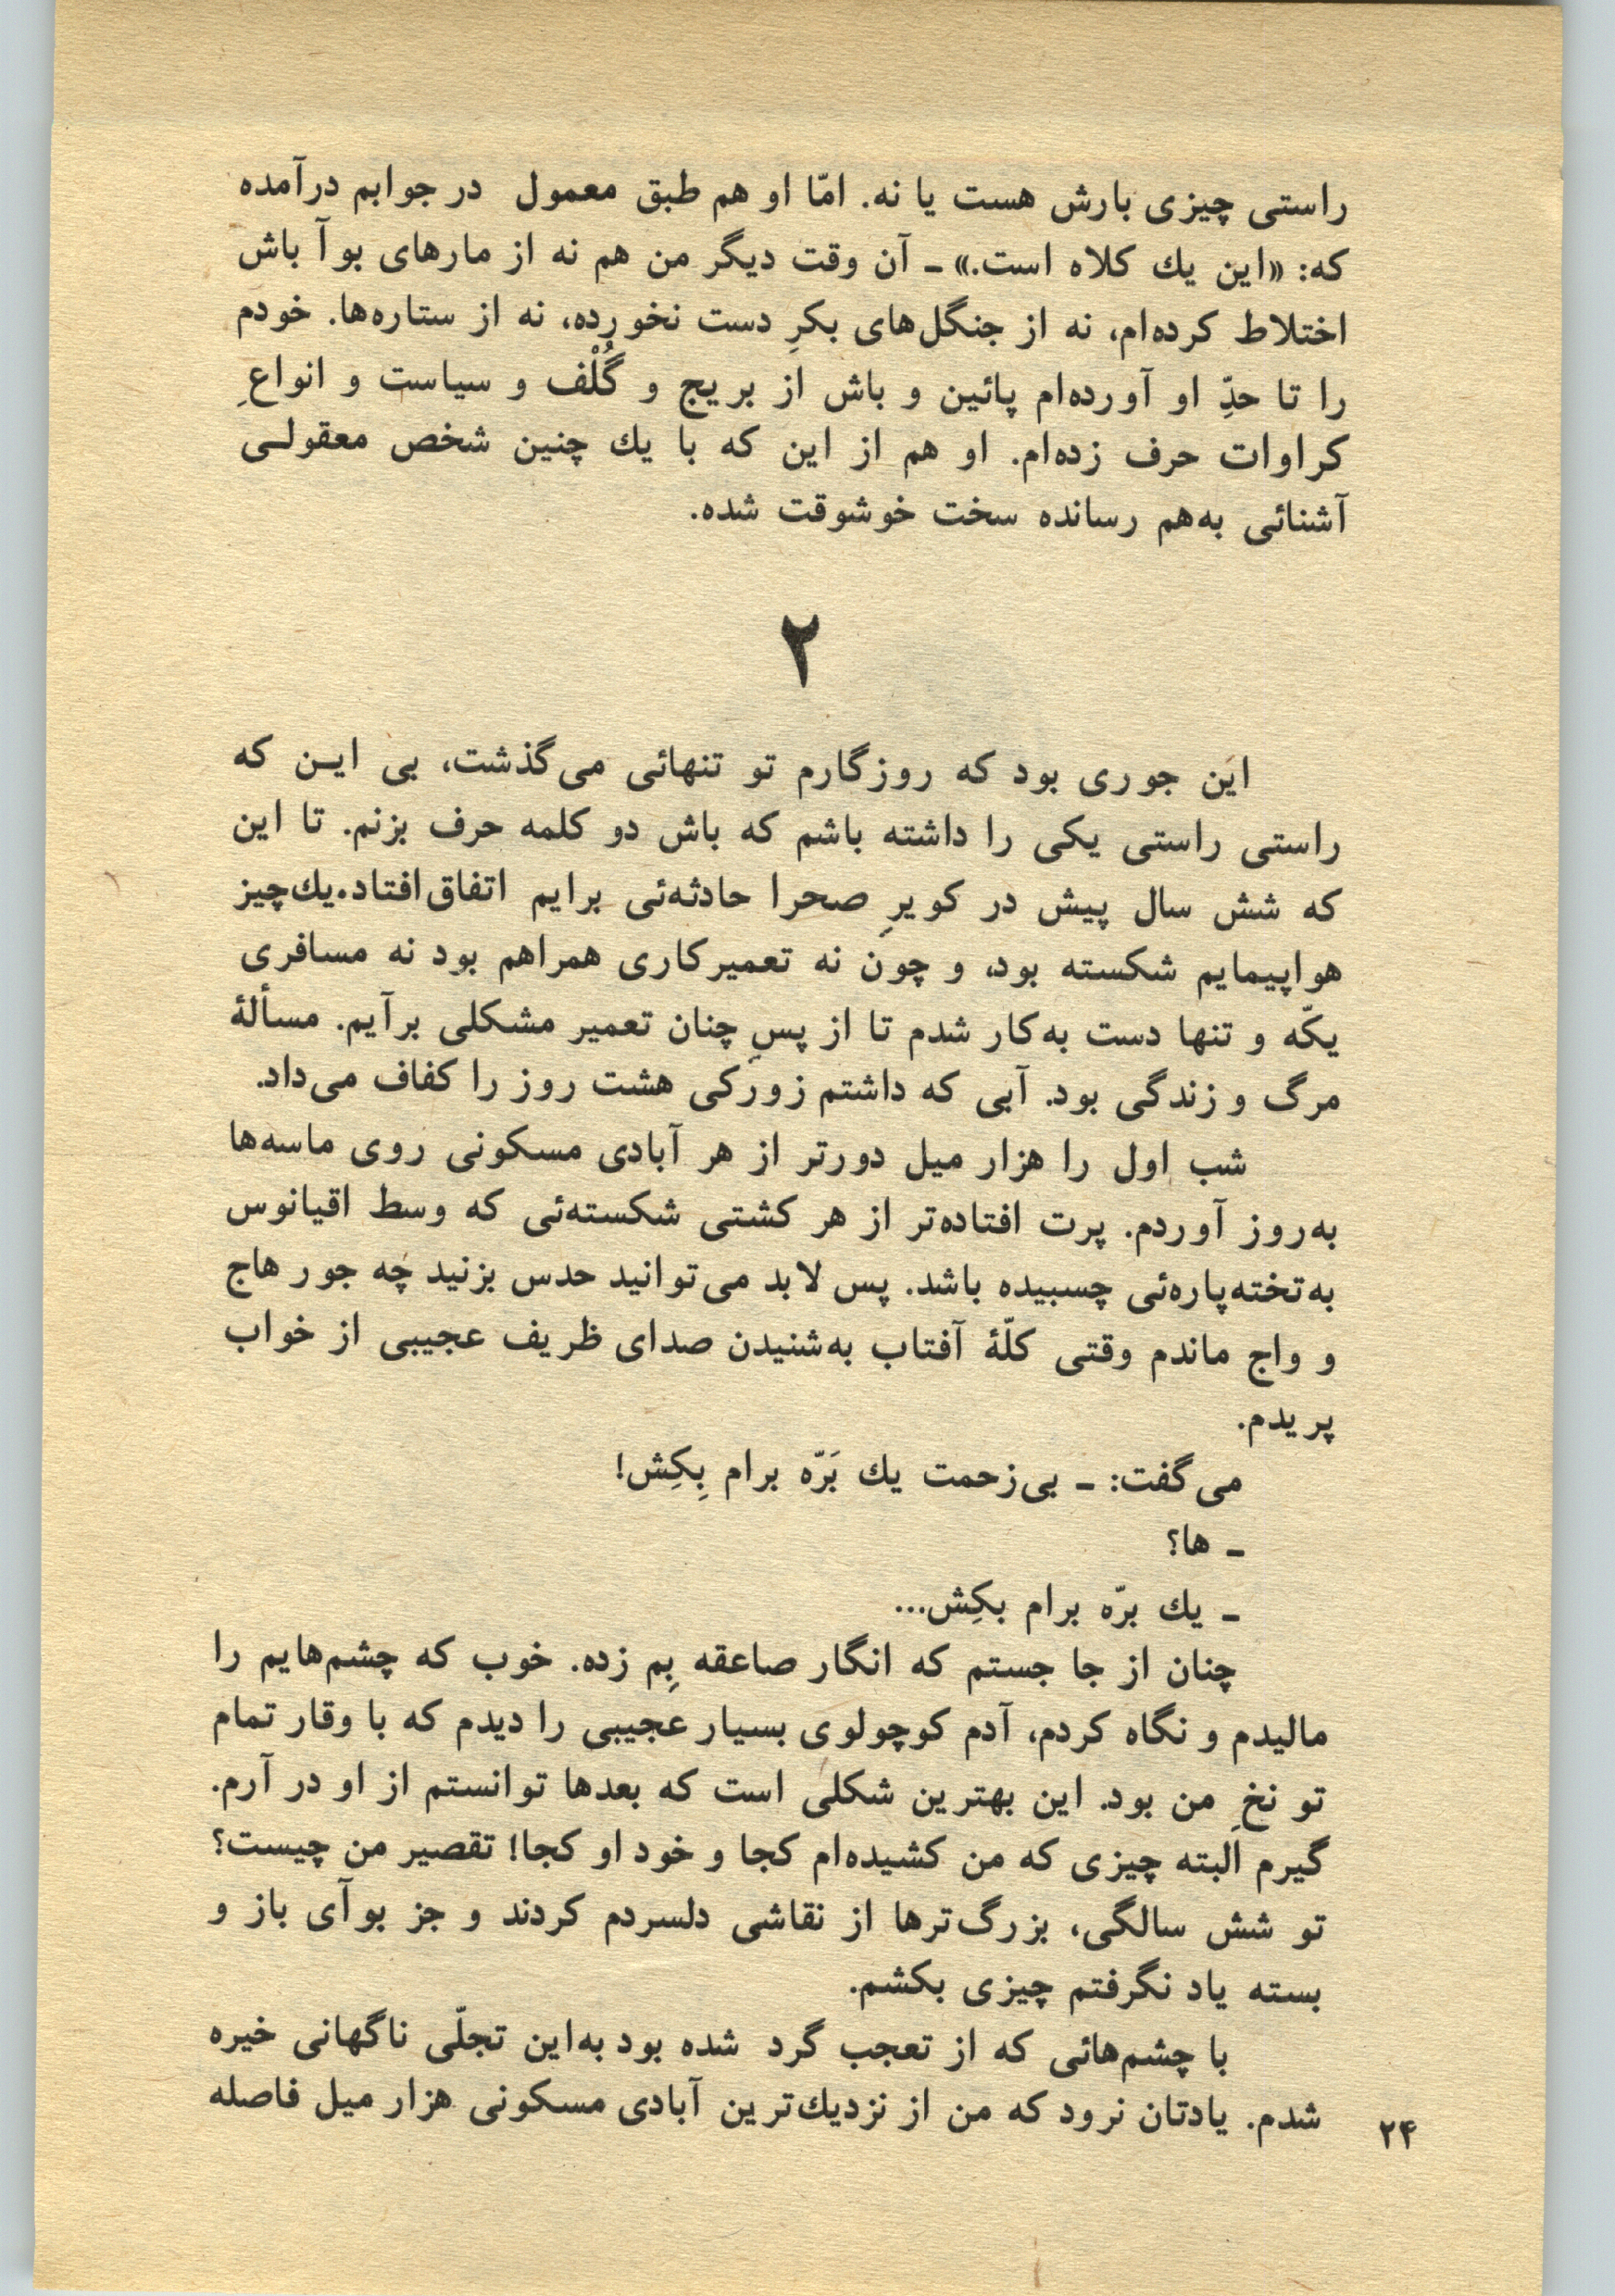 راستی چیزی بارش هست یا نه. امّا او هم طبق معمول در جوابم درآمده
که: «این یك کلاه است.» ـ آن وقت دیگر من هم نه از مارهای بوآ باش
اختلاط کرده‌ام، نه از جنگل‌های بکرِ دست نخورده، نه از ستاره‌ها. خودم
را تا حدِّ او آورده‌ام پائین و باش از بریج و گُلْف و سیاست و انواعِ
کراوات حرف زده‌ام. او هم از این که با یك چنین شخص معقولـی
آشنائی به‌هم رسانده سخت خوشوقت شده.
۲
این جوری بود که روزگارم تو تنهائی می‌گذشت، بی ایـن که
راستی راستی یکی را داشته باشم که باش دو کلمه حرف بزنم. تا این
که شش سال پیش در کویرِ صحرا حادثه‌ئی برایم اتفاق‌افتاد.یك‌چیز
هواپیمایم شکسته بود، و چون نه تعمیرکاری همراهم بود نه مسافری
یکّه و تنها دست به‌کار شدم تا از پسِ چنان تعمیر مشکلی برآیم. مسألهٔ
مرگ و زندگی بود. آبی که داشتم زورکی هشت روز را کفاف می‌داد.
شب اول را هزار میل دورتر از هر آبادی مسکونی روی ماسه‌ها
به‌روز آوردم. پرت افتاده‌تر از هر کشتی شکسته‌ئی که وسط اقیانوس
به‌تخته‌پاره‌ئی چسبیده باشد. پس لابد می‌توانید حدس بزنید چه جور هاج
و واج ماندم وقتی کلّهٔ آفتاب به‌شنیدن صدای ظریف عجیبی از خواب
پریدم.
می‌گفت: ـ بی‌زحمت یك بَرّه برام بِکِش!
ـ ها؟
ـ یك برّه برام بکِش...
چنان از جا جستم که انگار صاعقه بِم زده. خوب که چشم‌هایم را
مالیدم و نگاه کردم، آدم کوچولوی بسیار عجیبی را دیدم که با وقار تمام
تو نخِ من بود. این بهترین شکلی است که بعدها توانستم از او در آرم.
گیرم البته چیزی که من کشیده‌ام کجا و خود او کجا! تقصیر من چیست؟
تو شش سالگی، بزرگ‌ترها از نقاشی دلسردم کردند و جز بوآی باز و
بسته یاد نگرفتم چیزی بکشم.
با چشم‌هائی که از تعجب گرد شده بود به‌این تجلّی ناگهانی خیره
شدم. یادتان نرود که من از نزدیك‌ترین آبادی مسکونی هزار میل فاصله
۲۴